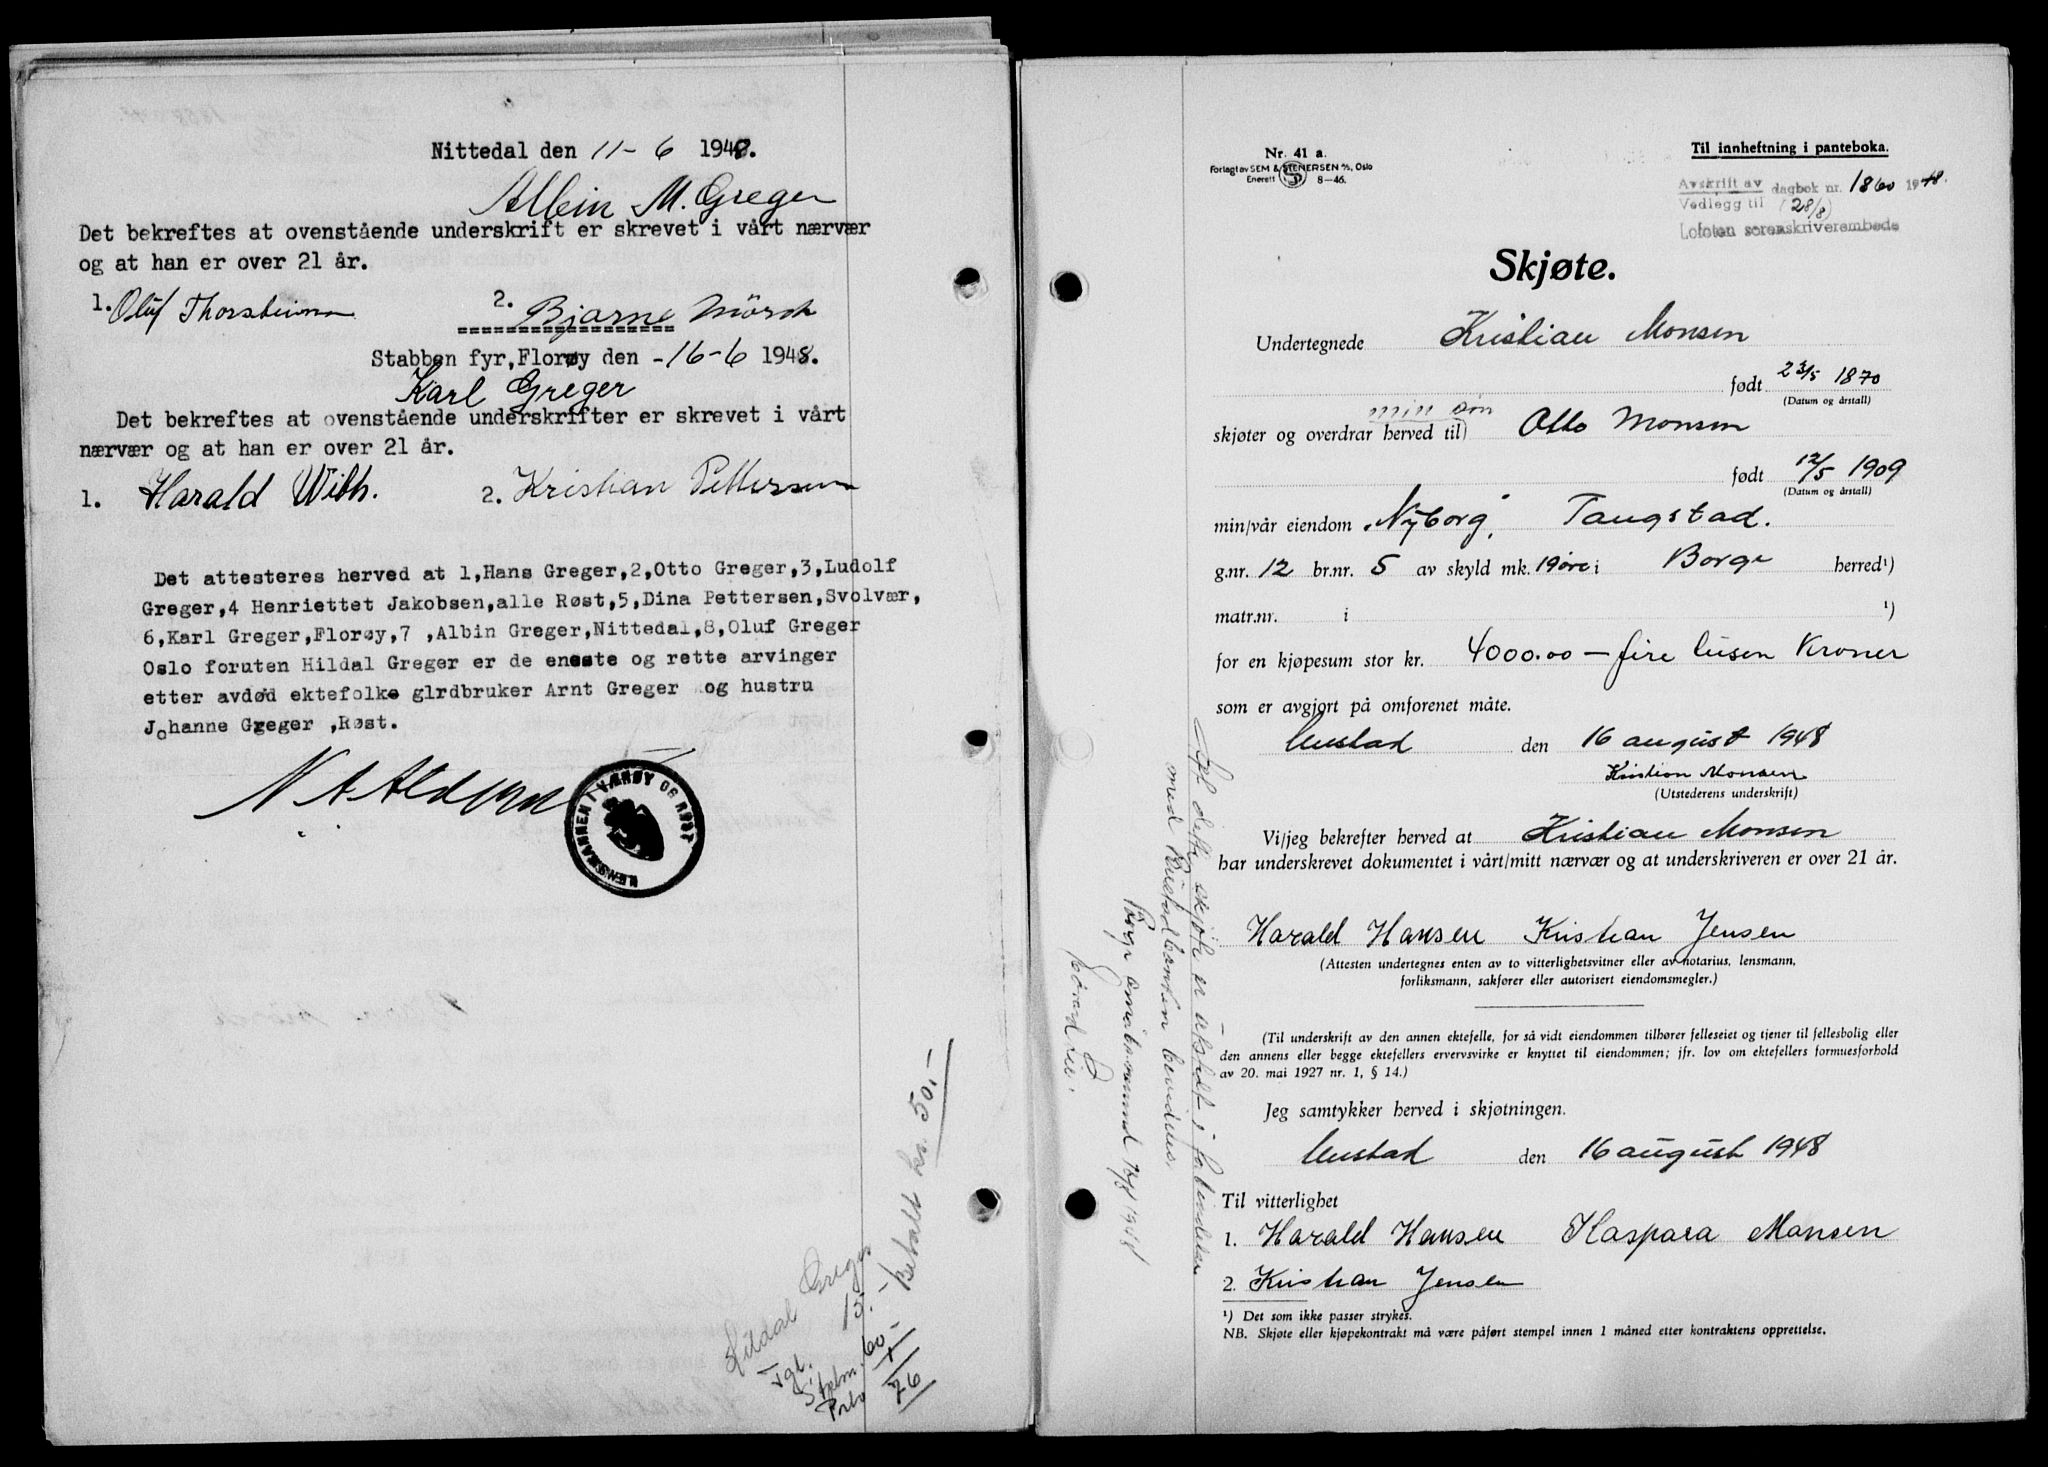 Nittedal den 11-6 1948.
Albin M. Greger
Det bekreftes at ovenstående underskrift er skrevet i vårt nærvær
og at han er over 21 år.
1. Oluf Thorsteinsen 2. Bjarne Mörch
Stabben fyr, Florøy den -16-6 1948.
Karl Greger
Det bekreftes at ovenstående underskrifter er skrevet i vårt
nærvær og at han er over 21 år.
1. Harald With. 2. Kristian Pettersen
Det attesteres herved at 1,Hans Greger,2,Otto Greger,3,Ludolf
Greger,4 Henriettet Jakobsen,alle Røst,5,Dina Pettersen,Svolvær,
6,Karl Greger,Florøy,7 ,Albin Greger,Nittedal,8,Oluf Greger
Oslo foruten Hildal Greger er de eneste og rette arvinger
etter avdød ektefolke glrdbruker Arnt Greger og hustru
Johanne Greger ,Røst.
LENSMANNEN I VÆRØY OG RØST
Hildal Greger
Tgl. 15.-
Stelm. 60.-
Porto 1
76
Betalt kr. 50.-
Nr. 41 a.
Forlagt av SEM & STENERSEN A/S, Oslo
Enerett 8-46.
Til innheftning i panteboka.
Avskrift av
Vedlegg til dagbok nr. 1860 1948.
(28/8)
Lofoten sorenskriverembede
Skjøte.
Undertegnede Kristian Monsen
født 23/5 1870
(Datum og årstall)
min søn
skjøter og overdrar herved til Otto Monsen
født 12/5 1909
(Datum og årstall)
min/vår eiendom "Nyborg", Tangstad.
g.nr. 12 br.nr. 5 av skyld mk. 19 øre i Borge herred¹)
matr.nr. i ¹)
for en kjøpesum stor kr. 4000.00 - fire tusen Kroner
som er avgjort på omforenet måte.
Unstad den 16 august 1948
Kristian Monsen
(Utstederens underskrift)
Vi/jeg bekrefter herved at Kristian Monsen
har underskrevet dokumentet i vårt/mitt nærvær og at underskriveren er over 21 år.
Harald Hansen Kristian Jensen
(Attesten undertegnes enten av to vitterlighetsvitner eller av notarius, lensmann,
forliksmann, sakfører eller autorisert eiendomsmegler.)
(Til underskrift av den annen ektefelle, for så vidt eiendommen tilhører felleseiet og tjener til fellesbolig eller
den annens eller begge ektefellers ervervsvirke er knyttet til eiendommen; jfr. lov om ektefellers formuesforhold
av 20. mai 1927 nr. 1, § 14.)
Jeg samtykker herved i skjøtningen.
Unstad den 16 august 1948
Til vitterlighet
1. Harald Hansen Kaspara Monsen
2. Kristian Jensen
¹) Det som ikke passer strykes.
NB. Skjøte eller kjøpekontrakt må være påført stempel innen 1 måned etter kontraktens opprettelse.
At dette skjøte er utstedt i forbindelse
med Bustadbanken bevidnes.